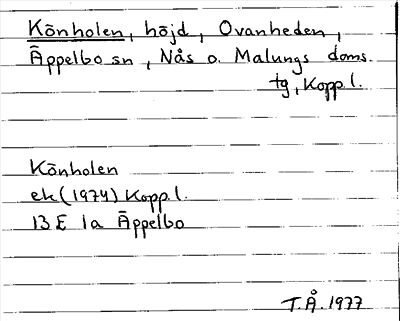 Könholen, höjd, Ovanheden,
Äppelbo sn, Nås o. Malungs doms.
tg, Kopp l.
Könholen
ek (1974) Kopp l.
13 E 1a Äppelbo
T.Å. 1977